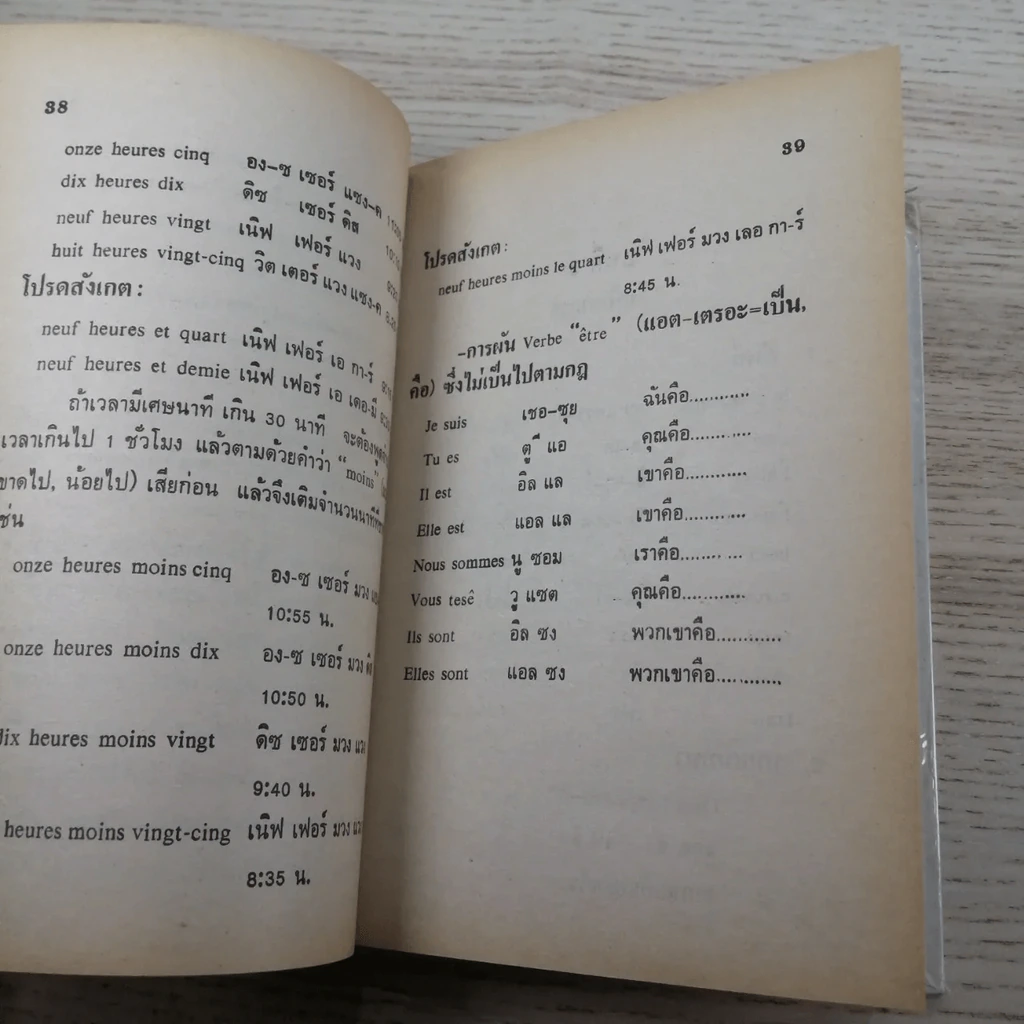 38
onze heures cinq อง-ซ เซอร์ แซง-ค
dix heures dix ดิซ เซอร์ ดิส
neuf heures vingt เนิฟ เฟอร์ แวง
huit heures vingt-cinq วิต เตอร์ แวง แซง-ค
โปรดสังเกต :
neuf heures et quart เนิฟ เฟอร์ เอ กา-ร์
neuf heures et demie เนิฟ เฟอร์ เอ เดอ-มี
ถ้าเวลามีเศษนาที เกิน 30 นาที จะต้อง
เวลาเกินไป 1 ชั่วโมง แล้วตามด้วยคำว่า “moins”
ขาดไป, น้อยไป) เสียก่อน แล้วจึงเติมจำนวนนาที
เช่น
onze heures moins cinq อง-ซ เซอร์ มวง
10:55 น.
onze heures moins dix อง-ซ เซอร์ มวง
10:50 น.
dix heures moins vingt ดิซ เซอร์ มวง
9:40 น.
heures moins vingt-cing เนิฟ เฟอร์ มวง
8:35 น.
39
โปรดสังเกต :
neuf heures moins le quart เนิฟ เฟอร์ มวง เลอ กา-ร์
8:45 น.
-การผัน Verbe “être” (แอต-เตรอะ=เป็น,
คือ) ซึ่งไม่เป็นไปตามกฎ
Je suis เชอ-ซุย ฉันคือ............
Tu es ตู แอ คุณคือ............
Il est อิล แล เขาคือ............
Elle est แอล แล เขาคือ............
Nous sommes นู ซอม เราคือ............
Vous tesê วู แซต คุณคือ............
Ils sont อิล ซง พวกเขาคือ............
Elles sont แอล ซง พวกเขาคือ............